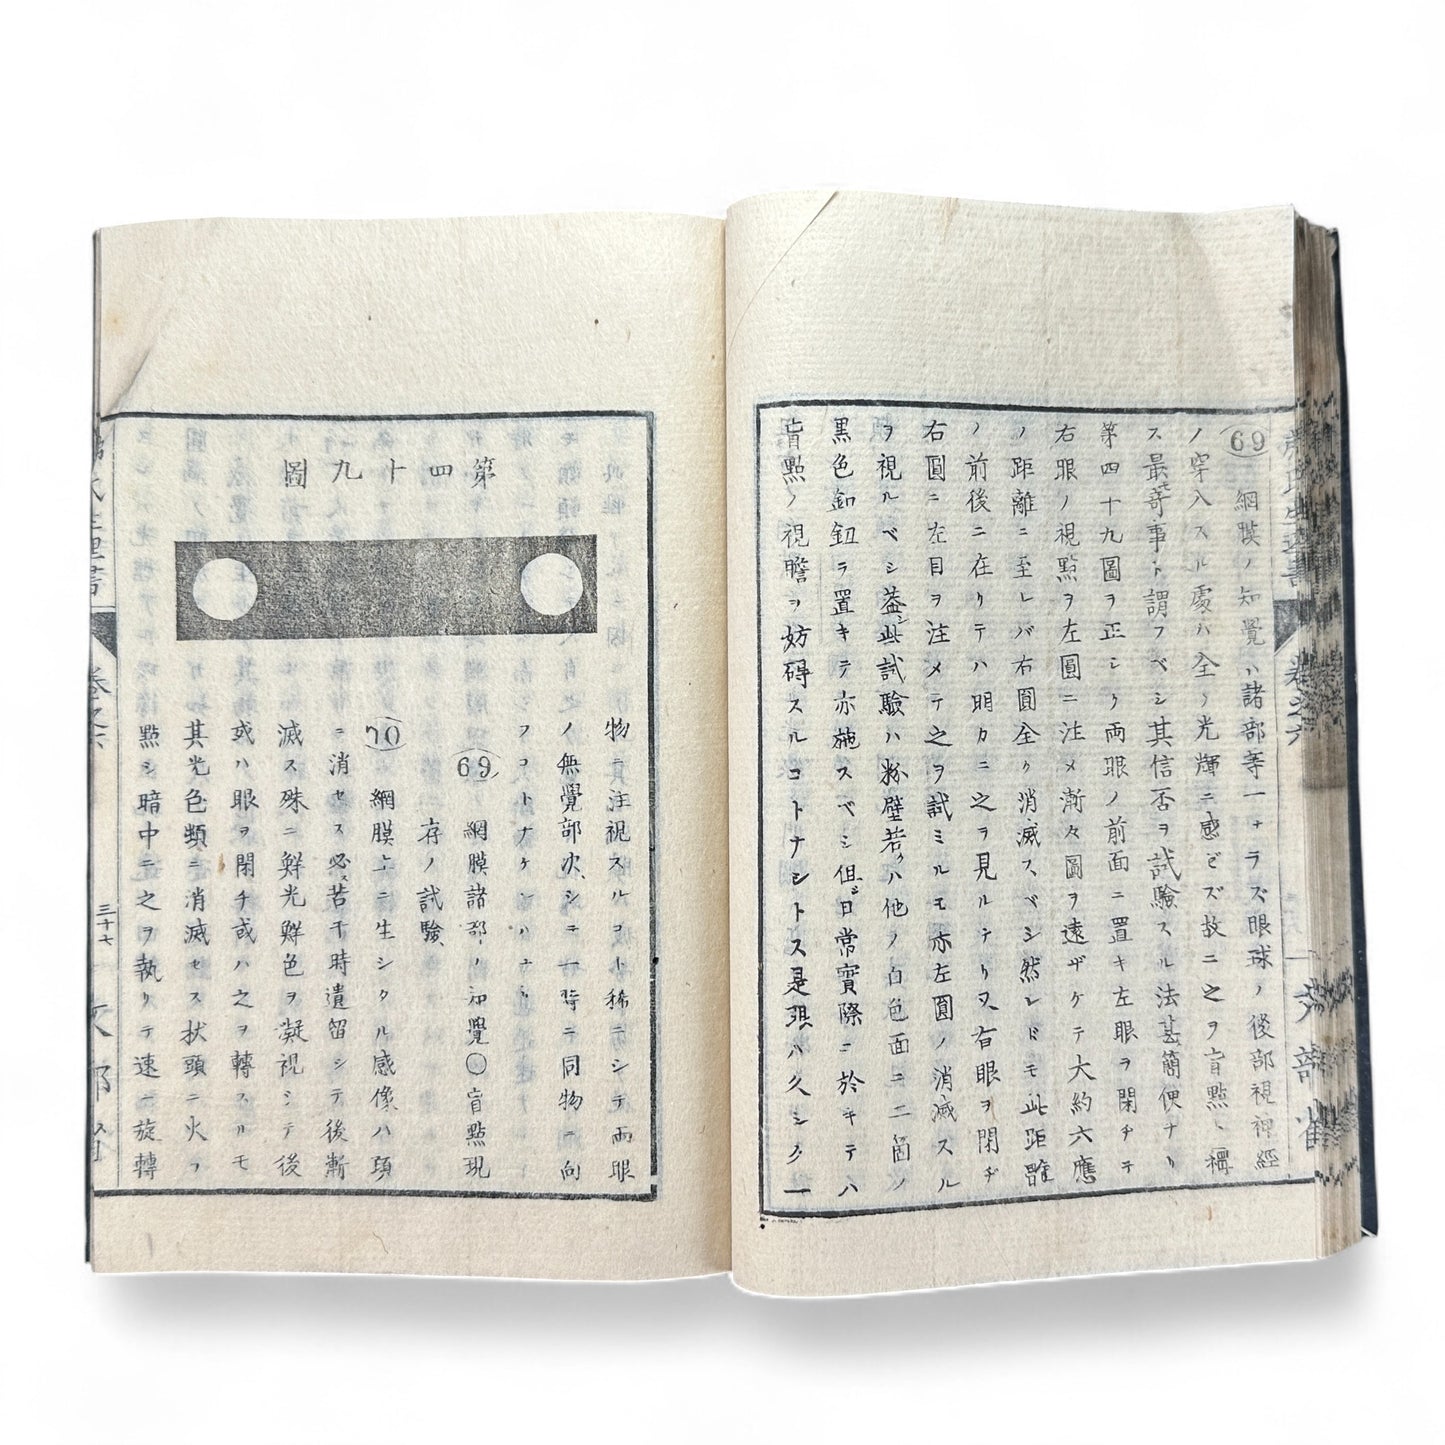 69 網膜ノ知覺ハ諸部等一ナラズ眼球ノ後部視神經
ノ穿入スル處ハ全ク光輝ニ感ゼズ故ニ之ヲ盲點ト稱
ス最モ奇事ト謂フベシ其信否ヲ試驗スル法甚簡便ナリ
第四十九圖ヲ正シク両眼ノ前面ニ置キ左眼ヲ閉チテ
右眼ノ視點ヲ左圓ニ注メ漸々圖ヲ遠ザケテ大約六應
ノ距離ニ至レバ右圓全ク消滅スベシ然レドモ此距離
ノ前後ニ在リテハ明カニ之ヲ見ルナリ又右眼ヲ閉ヂ
右圓ニ左目ヲ注メテ之ヲ試ミルモ亦左圓ノ消滅スル
ヲ視ルベシ蓋シ此試驗ハ粉壁若クハ他ノ白色面ニ二箇ノ
黒色釦鈕ヲ置キテ亦施スベシ但シ日常實際ニ於キテハ
盲點ノ視瞻ヲ妨碍スルコトナシトス是頭ハ久シク一
第四十九圖
物ニ注視スルコト稀ニシテ両眼
ノ無覺部次シモ一時ニ同物ニ向
フコトナケレハナリ
69 網膜諸部ノ知覺○盲點現
存ノ試驗
70 網膜上ニ生シタル感像ハ頃
ニ消セス必ス若干時遺留シテ後漸
滅ス殊ニ鮮光鮮色ヲ凝視シテ後
或ハ眼ヲ閉チ或ハ之ヲ轉スルモ
其光色頬ニ消滅セス状頭ニ火ヲ
點シ暗中ニ之ヲ執リテ速ニ旋轉
卷之六
三十七
文部省